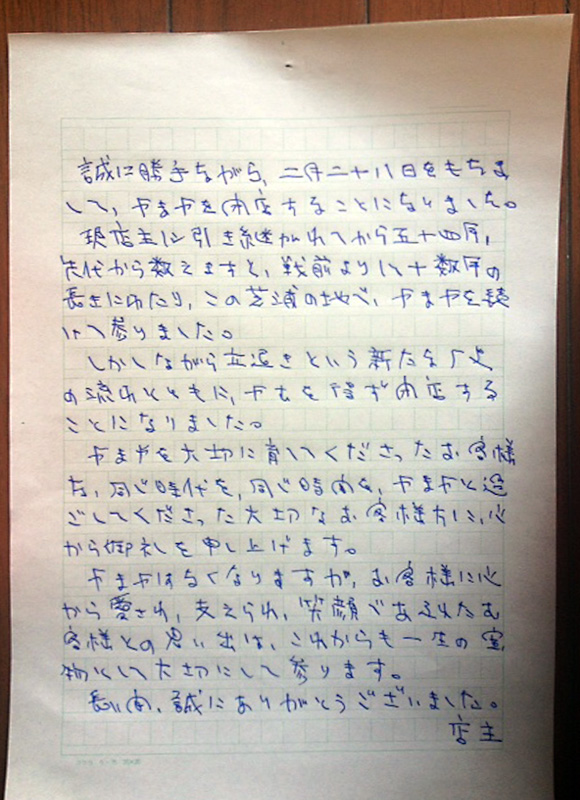 誠に勝手ながら、二月二十八日をもちま
して、やまやを閉店することになりました。
現店主に引き継がれてから五十四年、
先代から数えますと、戦前より八十数年の
長きにわたり、この芝浦の地で、やまやを続
けて参りました。
しかしながら立退きという新たな歴史
の流れとともに、やむを得ず閉店する
ことになりました。
やまやを大切に育ててくださったお客様
方、同じ時代を、同じ時間を、やまやと過
ごしてくださった大切なお客様方に、心
から御礼を申し上げます。
やまやはなくなりますが、お客様に心
から愛され、支えられ、笑顔であふれたお
客様との思い出は、これからも一生の宝
物として大切にして参ります。
長い間、誠にありがとうございました。
店主